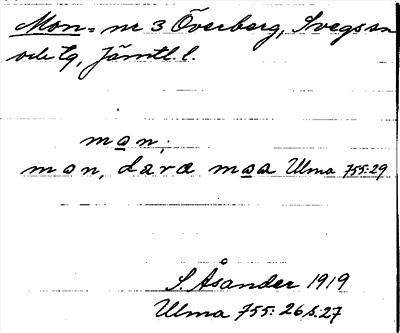 Mon = nr 3 Överberg, Svegs sn
och tg, Jämtl. l.
mon;
mon, dara moa Ulma 755:29
S. Åsander 1919
Ulma 755:26 s. 27